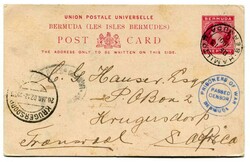 UNION POSTALE UNIVERSELLE
BERMUDA (LES ISLES BERMUDES)
POST CARD
THE ADDRESS ONLY TO BE WRITTEN ON THIS SIDE.
BERMUDA
HAMILTON
C. G. Hauser, Esq
P.O. Box 2
Krugersdorp
Transvaal S. Africa
KRUGERSDORP
PRISONERS OF WAR
PASSED
CENSOR
BERMUDA